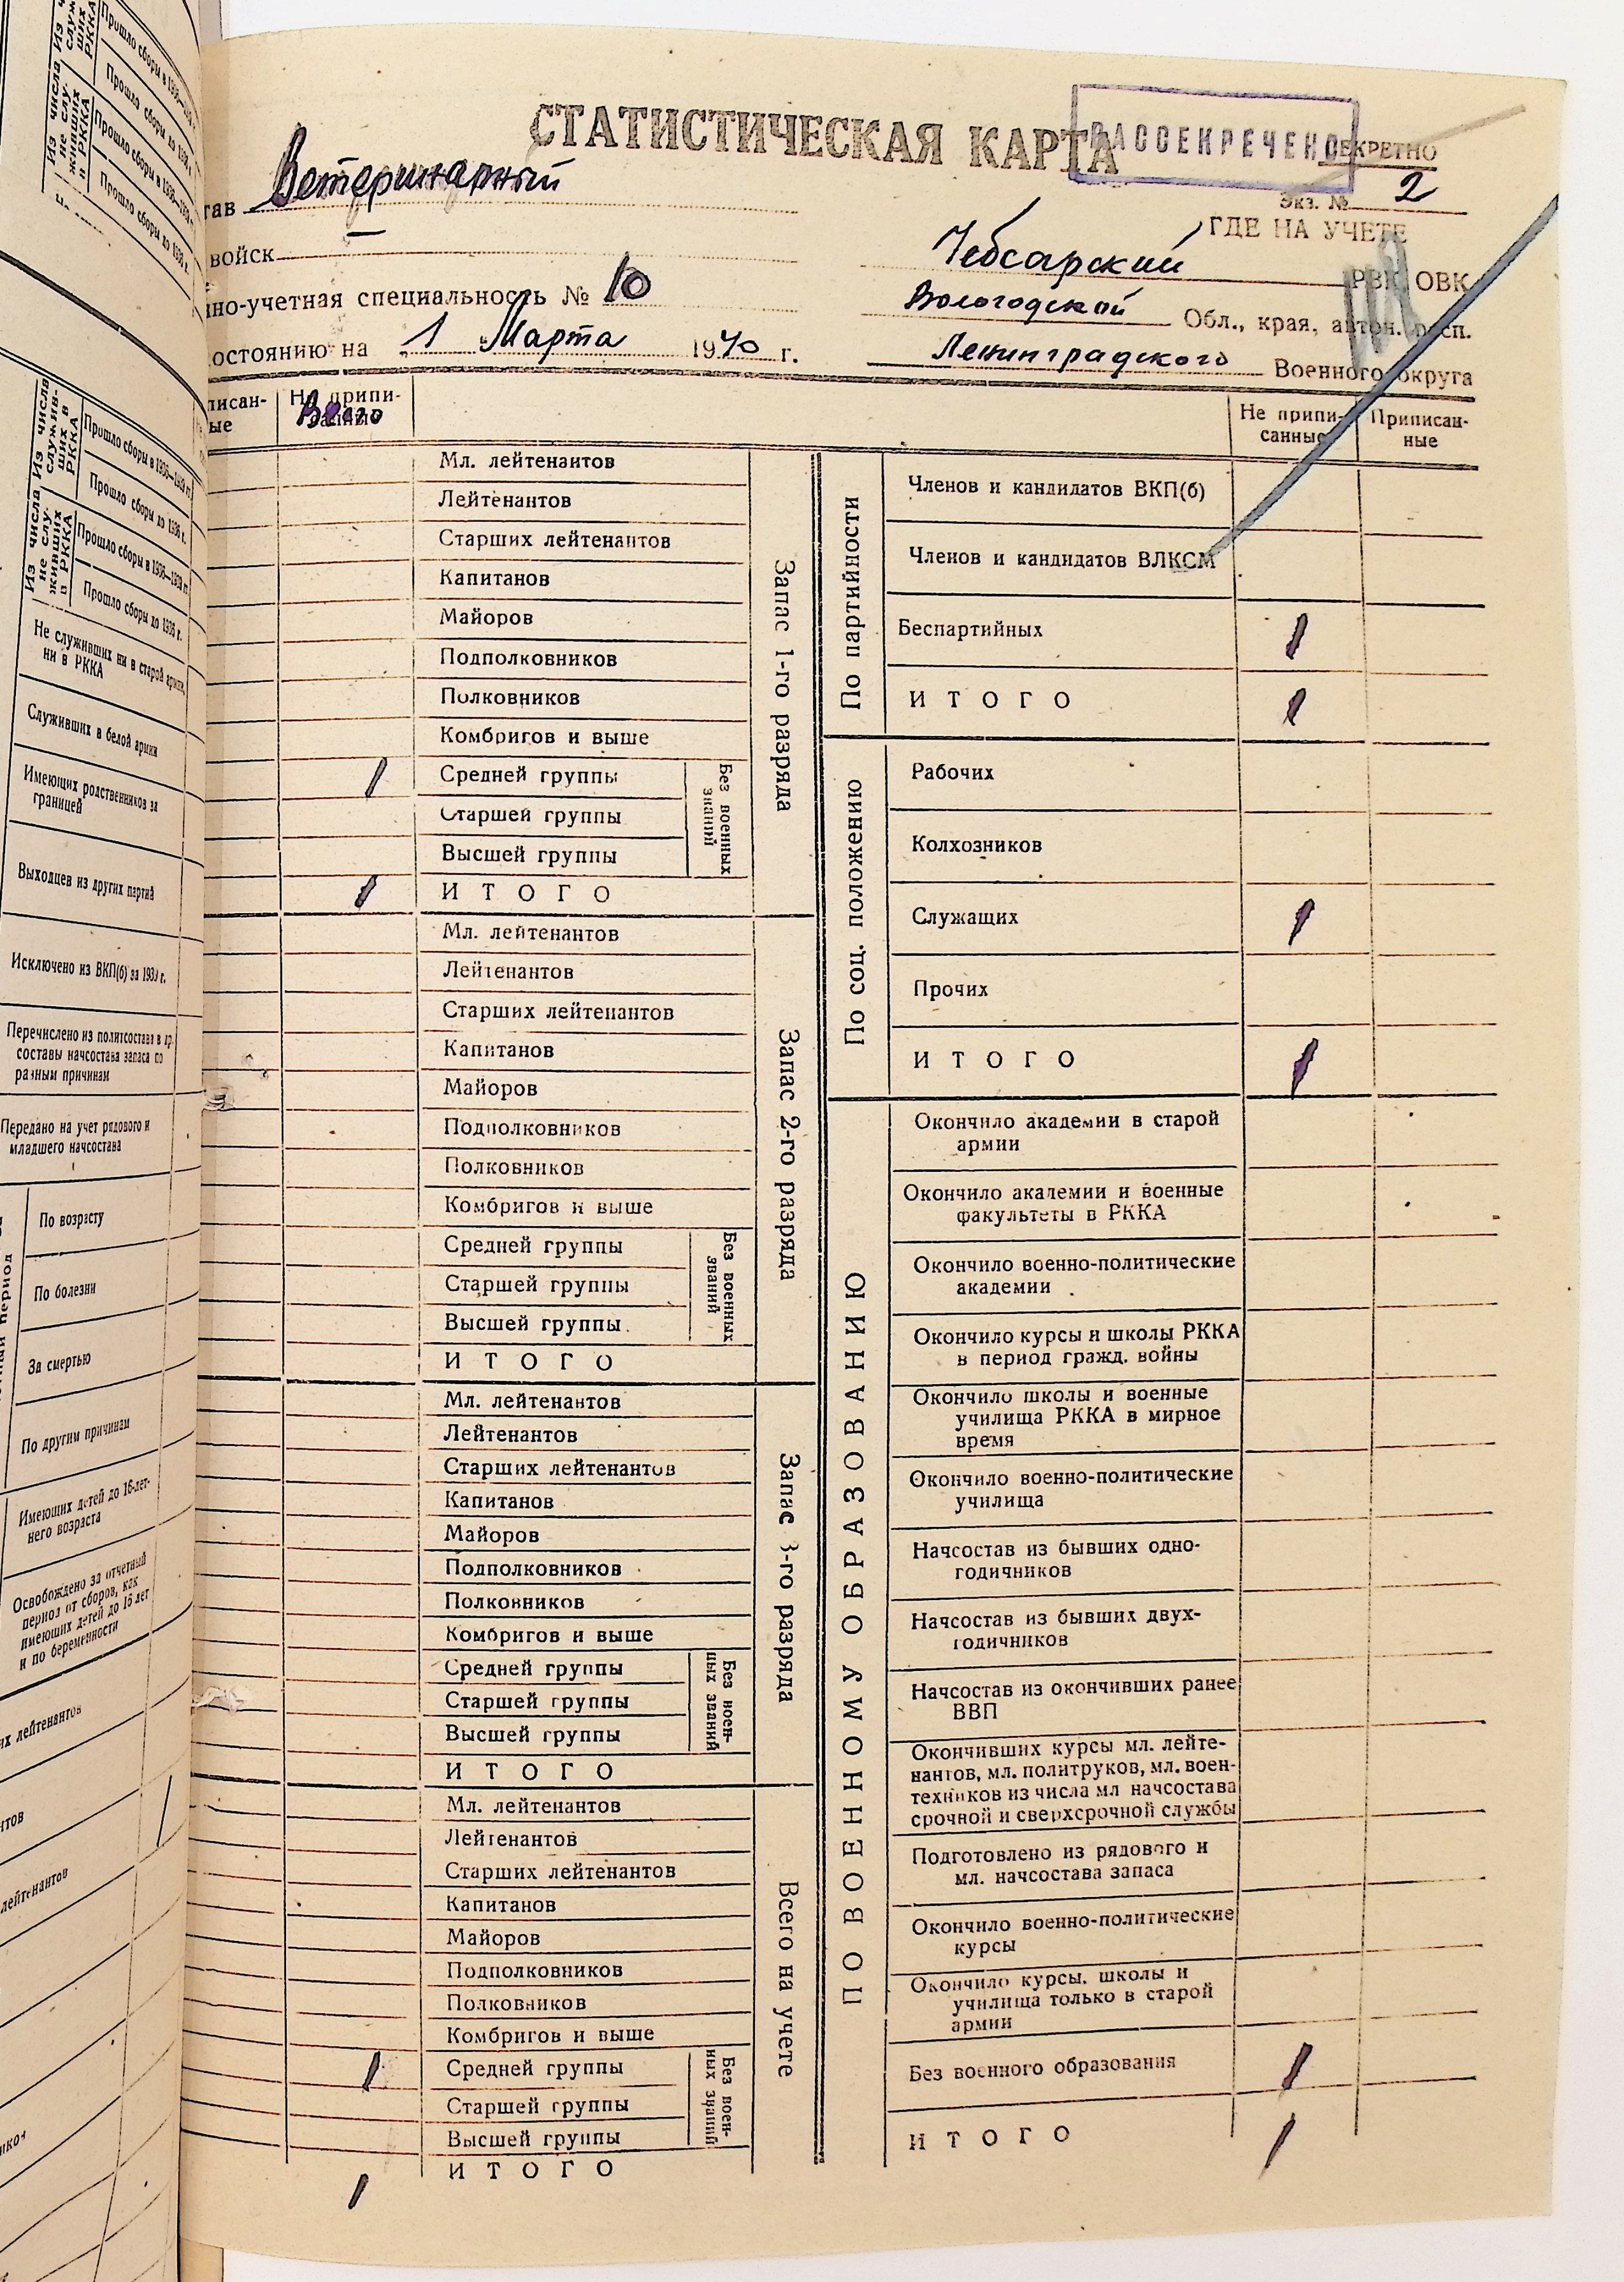 Прошло сборы в 1936—1939 гг.
Прошло сборы до 1936 г.
Прошло сборы в 1936—1939 гг.
Прошло сборы до 1936 г.
Из числа служивших в РККА
Из числа не служивших в РККА
Прошло сборы в 1936—1939 гг.
Прошло сборы до 1936 г.
Прошло сборы в 1936—1939 гг.
Прошло сборы до 1936 г.
Не служивших ни в старой армии,
ни в РККА
Служивших в белой армии
Имеющих родственников за
границей
Выходцев из других партий
Исключено из ВКП(б) за 1939 г.
Перечислено из политсостава в др.
составы начсостава запаса по
разным причинам
Передано на учет рядового и
младшего начсостава
период
По возрасту
По болезни
За смертью
По другим причинам
Имеющих детей до 16-лет-
него возраста
Освобождено за отчетный
период от сборов, как
имеющих детей до 16 лет
и по беременности
их лейтенантов
нтов
лейтенантов
СТАТИСТИЧЕСКАЯ КАРТА
РАССЕКРЕЧЕНО
СЕКРЕТНО
Экз. № 2
тав Ветеринарный
войск —
нно-учетная специальность № 10
остоянию на 1 Марта 1940 г.
ГДЕ НА УЧЕТЕ
Чебсарский РВК, ОВК
Вологодской Обл., края, автон. респ.
Ленинградского Военного округа
писан-
ые
Не припи-
санные
Всего
Не припи-
санные
Приписан-
ные
Запас 1-го разряда
Мл. лейтенантов
Лейтенантов
Старших лейтенантов
Капитанов
Майоров
Подполковников
Полковников
Комбригов и выше
1 Средней группы
Старшей группы
Высшей группы
Без военных
званий
1 ИТОГО
Запас 2-го разряда
Мл. лейтенантов
Лейтенантов
Старших лейтенантов
Капитанов
Майоров
Подполковников
Полковников
Комбригов и выше
Средней группы
Старшей группы
Высшей группы
Без военных
званий
ИТОГО
Запас 3-го разряда
Мл. лейтенантов
Лейтенантов
Старших лейтенантов
Капитанов
Майоров
Подполковников
Полковников
Комбригов и выше
Средней группы
Старшей группы
Высшей группы
Без воен-
ных званий
ИТОГО
Всего на учете
Мл. лейтенантов
Лейтенантов
Старших лейтенантов
Капитанов
Майоров
Подполковников
Полковников
Комбригов и выше
1 Средней группы
Старшей группы
Высшей группы
Без воен-
ных званий
1 ИТОГО
По партийности
Членов и кандидатов ВКП(б)
Членов и кандидатов ВЛКСМ
Беспартийных 1
ИТОГО 1
По соц. положению
Рабочих
Колхозников
Служащих 1
Прочих
ИТОГО 1
ПО ВОЕННОМУ ОБРАЗОВАНИЮ
Окончило академии в старой
армии
Окончило академии и военные
факультеты в РККА
Окончило военно-политические
академии
Окончило курсы и школы РККА
в период гражд. войны
Окончило школы и военные
училища РККА в мирное
время
Окончило военно-политические
училища
Начсостав из бывших одно-
годичников
Начсостав из бывших двух-
годичников
Начсостав из окончивших ранее
ВВП
Окончивших курсы мл. лейте-
нантов, мл. политруков, мл. воен-
техников из числа мл начсостава
срочной и сверхсрочной службы
Подготовлено из рядового и
мл. начсостава запаса
Окончило военно-политические
курсы
Окончило курсы, школы и
училища только в старой
армии
Без военного образования 1
ИТОГО 1